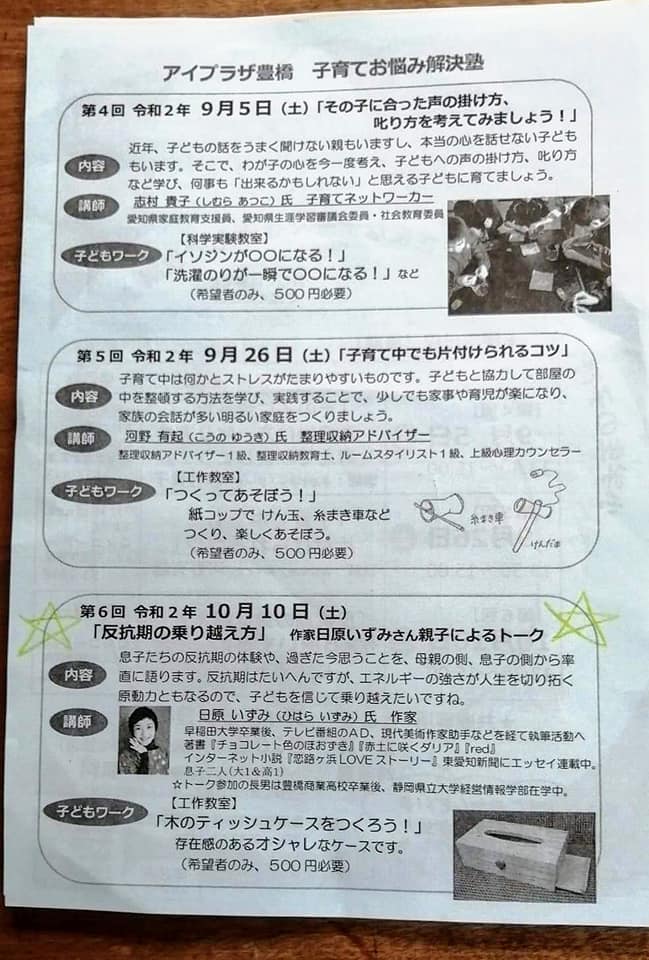 アイプラザ豊橋 子育てお悩み解決塾
第4回 令和2年 9月5日（土）「その子に合った声の掛け方、
叱り方を考えてみましょう！」
内容
近年、子どもの話をうまく聞けない親もいますし、本当の心を話せない子ども
もいます。そこで、わが子の心を今一度考え、子どもへの声の掛け方、叱り方
など学び、何事も「出来るかもしれない」と思える子どもに育てましょう。
講師
志村 貴子（しむら あつこ）氏 子育てネットワーカー
愛知県家庭教育支援員、愛知県生涯学習審議会委員・社会教育委員
子どもワーク
【科学実験教室】
「イソジンが〇〇になる！」
「洗濯のりが一瞬で〇〇になる！」など
（希望者のみ、500円必要）
第5回 令和2年 9月26日（土）「子育て中でも片付けられるコツ」
内容
子育て中は何かとストレスがたまりやすいものです。子どもと協力して部屋の
中を整頓する方法を学び、実践することで、少しでも家事や育児が楽になり、
家族の会話が多い明るい家庭をつくりましょう。
講師
河野 有起（こうの ゆうき）氏 整理収納アドバイザー
整理収納アドバイザー1級、整理収納教育士、ルームスタイリスト1級、上級心理カウンセラー
子どもワーク
【工作教室】
「つくってあそぼう！」
紙コップで けん玉、糸まき車など
つくり、楽しくあそぼう。
（希望者のみ、500円必要）
糸まき車
けんだま
第6回 令和2年 10月10日（土）
「反抗期の乗り越え方」 作家日原いずみさん親子によるトーク
内容
息子たちの反抗期の体験や、過ぎた今思うことを、母親の側、息子の側から率
直に語ります。反抗期はたいへんですが、エネルギーの強さが人生を切り拓く
原動力ともなるので、子どもを信じて乗り越えたいですね。
講師
日原 いずみ（ひはら いずみ）氏 作家
早稲田大学卒業後、テレビ番組のAD、現代美術作家助手などを経て執筆活動へ
著書『チョコレート色のほおずき』『赤土に咲くダリア』『red』
インターネット小説『恋路ヶ浜LOVEストーリー』東愛知新聞にエッセイ連載中。
息子二人（大1＆高1）
☆トーク参加の長男は豊橋商業高校卒業後、静岡県立大学経営情報学部在学中。
子どもワーク
【工作教室】
「木のティッシュケースをつくろう！」
存在感のあるオシャレなケースです。
（希望者のみ、500円必要）